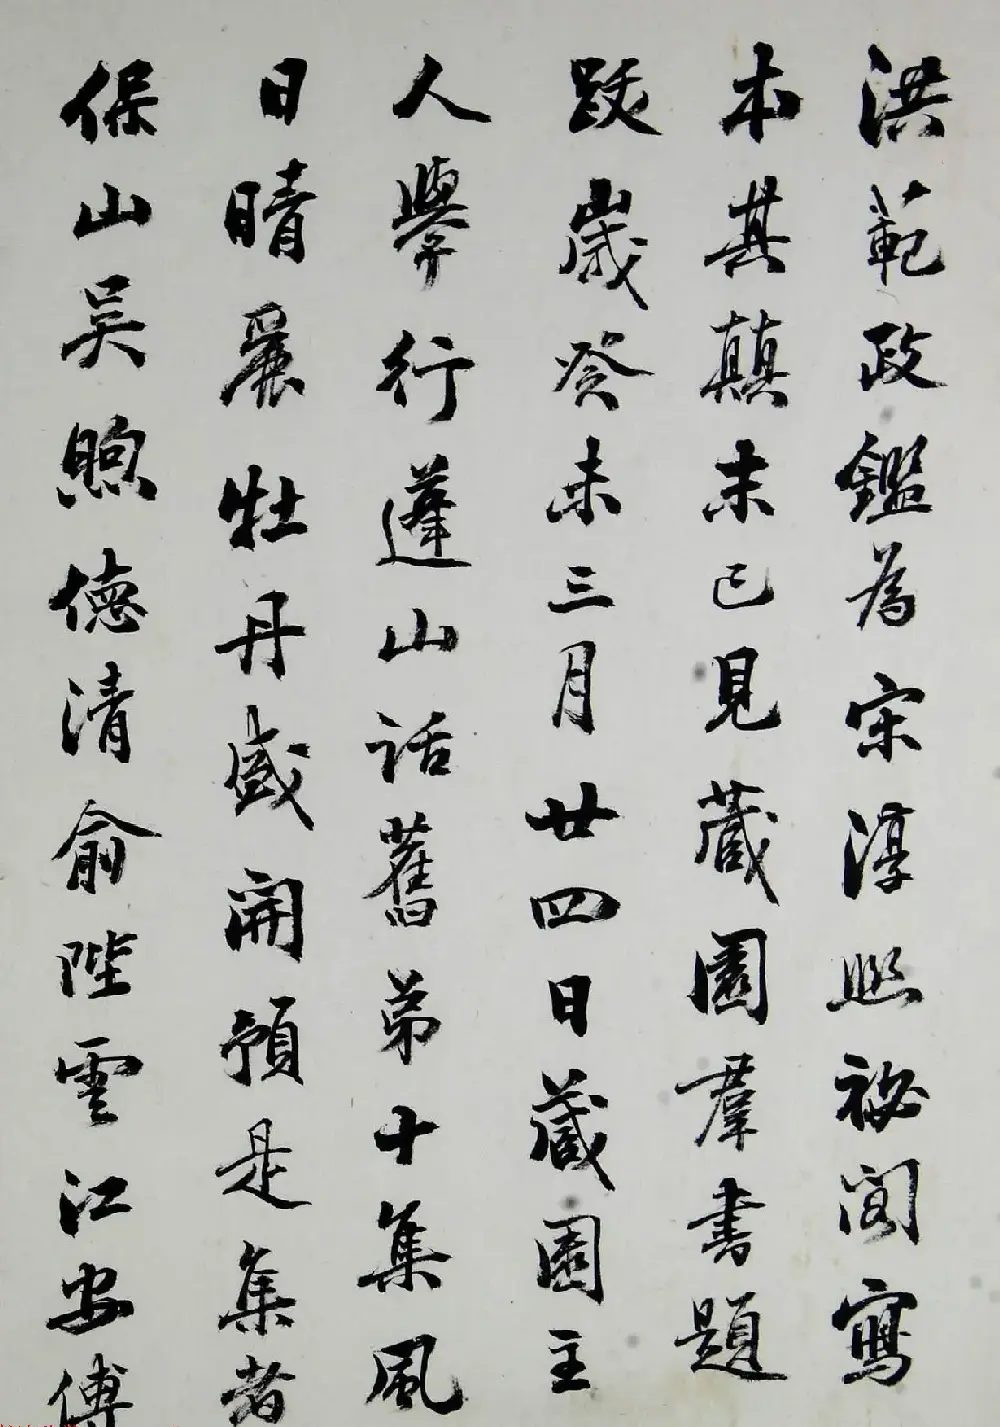 洪範政鑑為宋淳熙祕閣寫
本其顛末已見藏園羣書題
跋歲癸未三月廿四日藏園主
人舉行蓬山話舊第十集風
日晴麗牡丹盛開預是集者
保山吳煦德清俞陛雲江安傅